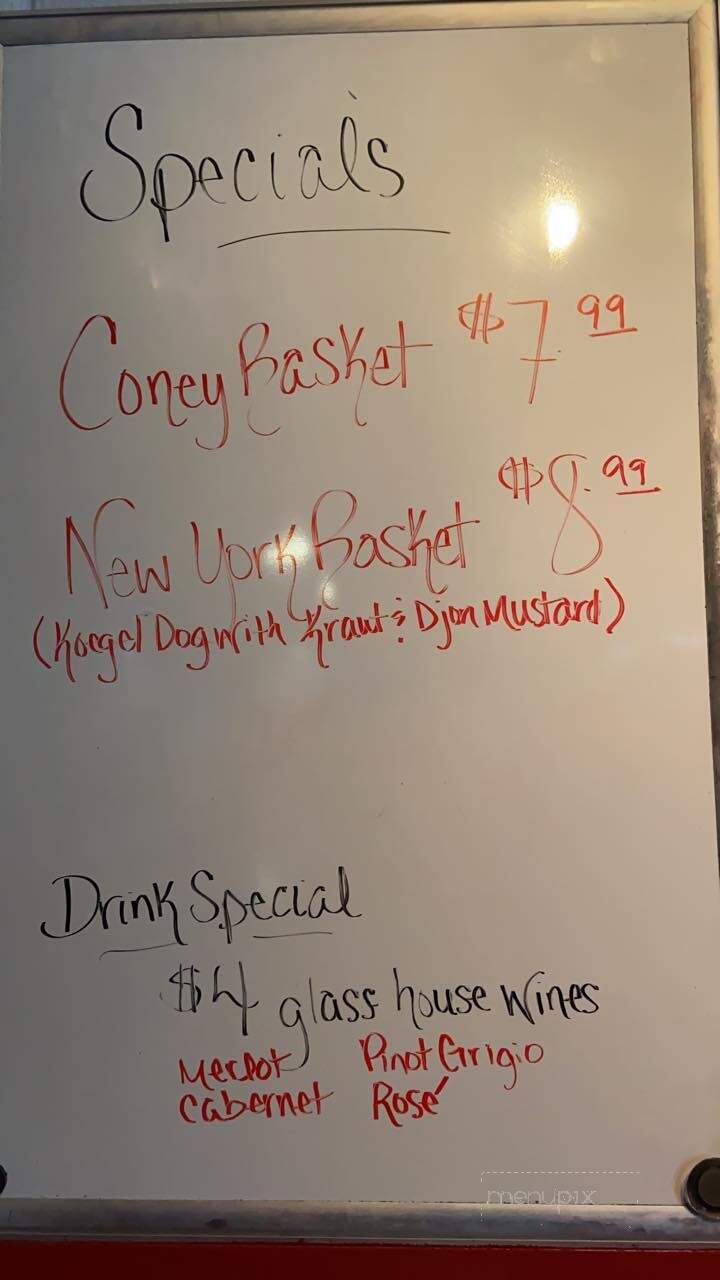 Specials
Coney Basket $7.99
New York Basket $8.99
(Koegel Dog with Kraut & Djon Mustard)
Drink Special
$4 glass house wines
Merlot Pinot Grigio
Cabernet Rosé
menupix